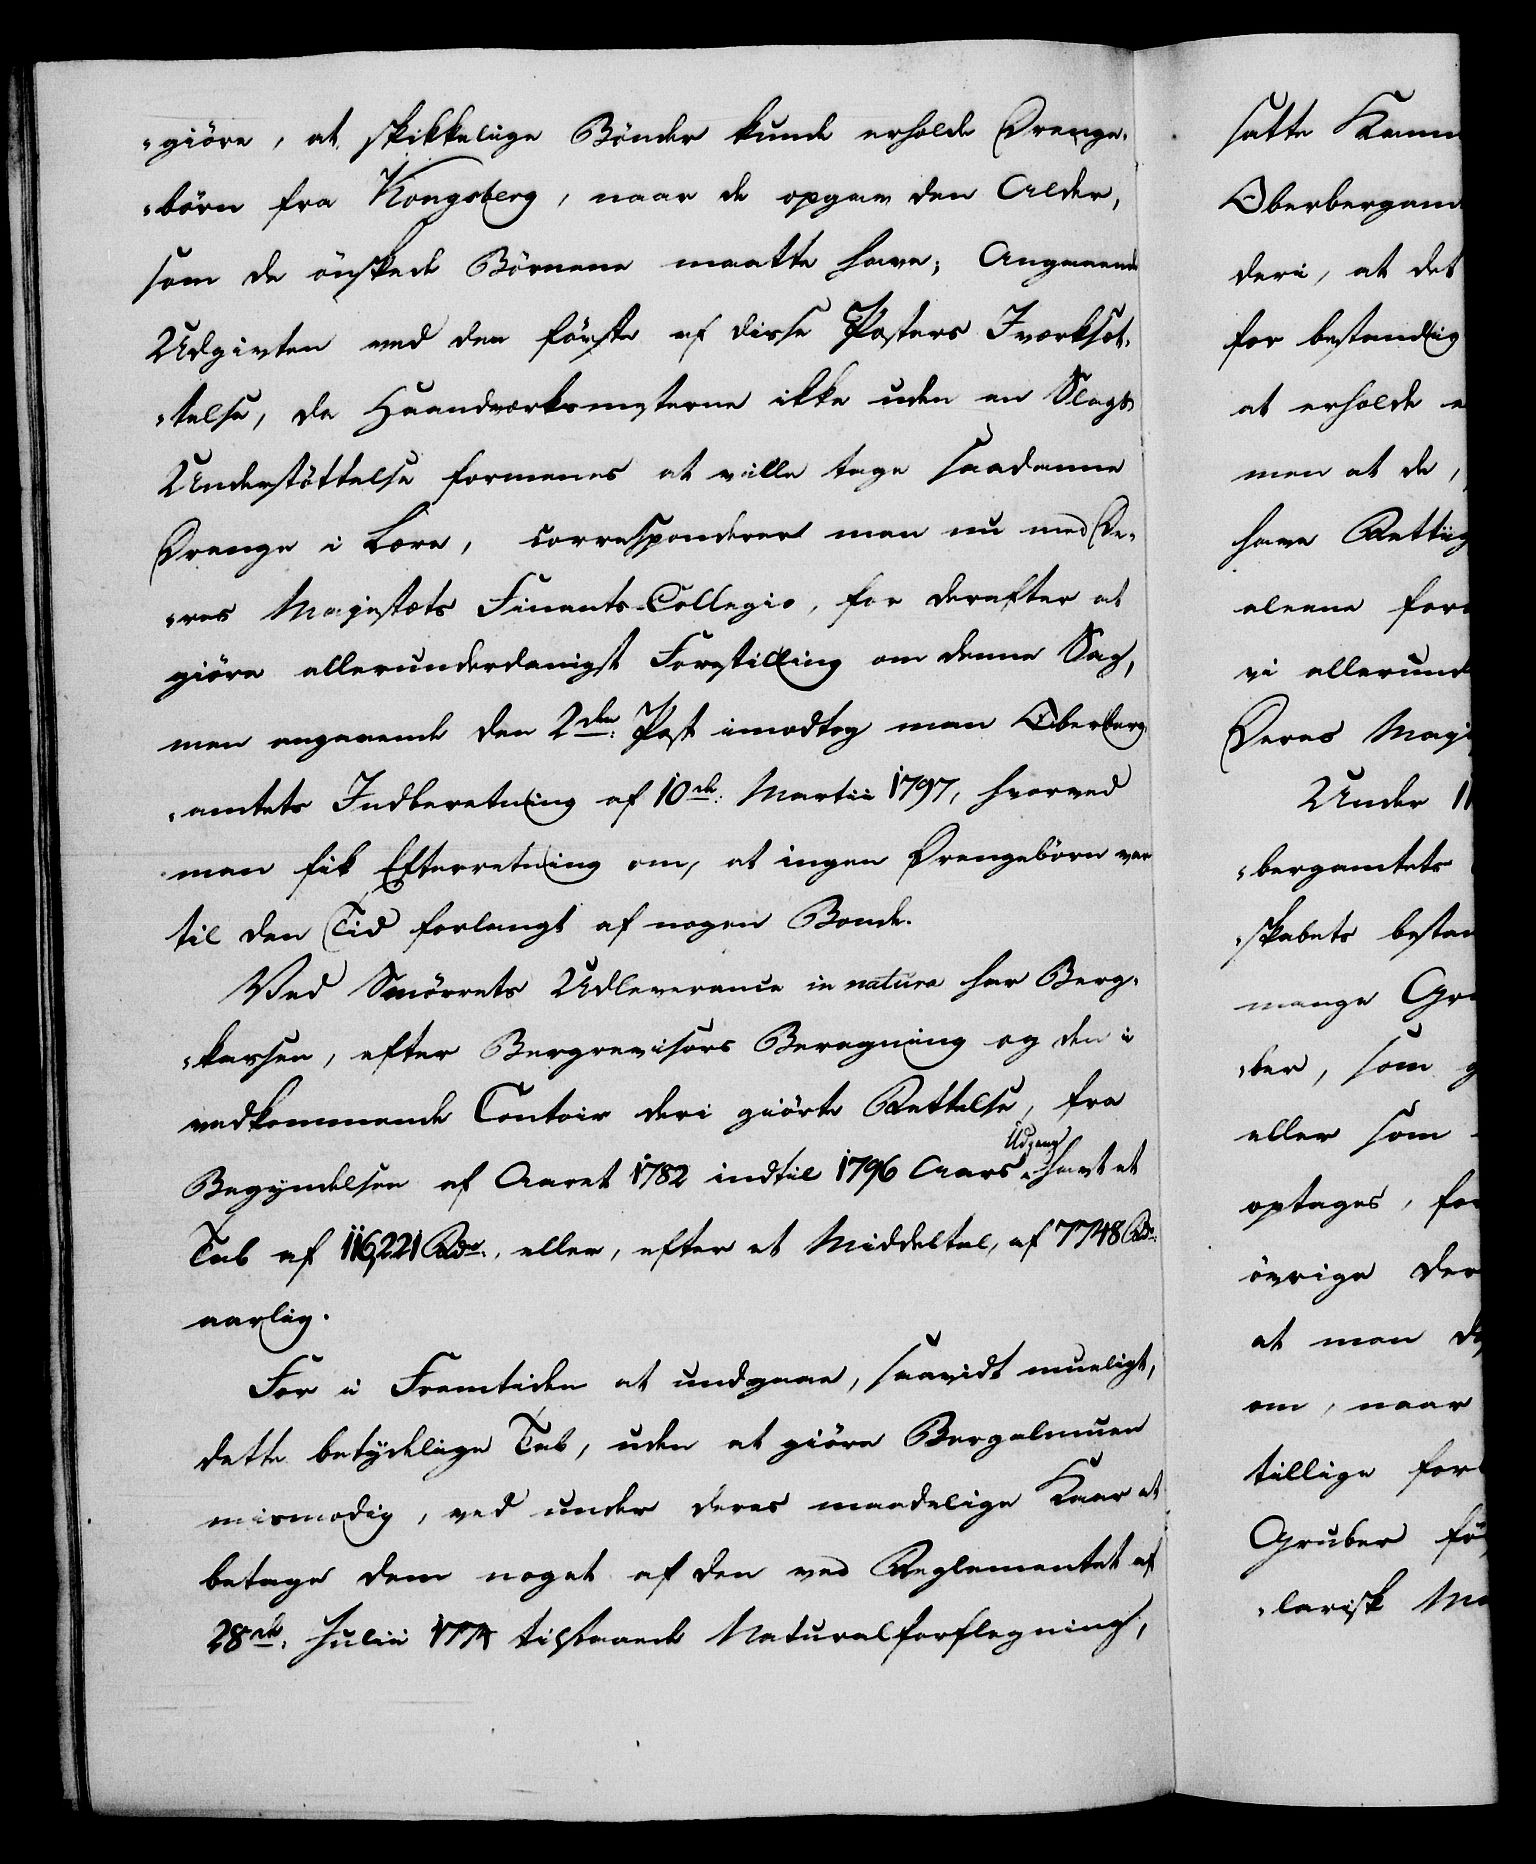 -giöre, at skikkelige Bönder kunde erholde Drenge-
-börn fra Kongsberg, naar de opgav den Alder,
som de önskede Börnene maatte have; Angaaende
Udgivten ved den förste af disse Posters Iværksæt-
-telse, da Haandværksmesterne ikke uden en Slags
Understöttelse formenes at ville tage saadanne
Drenge i Lære, corresponderer man nu med De-
-res Majestæts Finants-Collegio, for derefter at
giöre allerunderdanigst Forestilling om denne Sag,
men angaaende den 2den Post imodtog man Oberberg-
-amtets Indberetning af 10de Martii 1797, hvorved
man fik Efterretning om, at ingen Drengebörn var
til den Tid forlangt af nogen Bonde.
Ved Smörrets Udleverance in natura har Berg-
-kassen, efter Bergrevisors Beregning og den i
vedkommende Contoir deri giörte Rettelse, fra
Begyndelsen af Aaret 1782 indtil 1796 Aars Udgang havt et
Tab af 116,221 Rdr., eller, efter et Middeltal, af 7748 Rdr.
aarlig.
For i Fremtiden at undgaae, saavidt mueligt,
dette betydelige Tab, uden at giöre Bergalmuen
mismodig, ved under deres maadelige Kaar at
betage dem noget af den ved Reglementet af
28de Julii 1774 tilstaaede Naturalforflegning,
satte Kamm
Oberbergam
deri, at det
for bestandig
at erholde e
men at de,
have Rettig
alene for
vi allerund
Deres Maj
Under 11
-bergamtets
-skabets bestan
mange Gru
-ber, som g
eller som
optages, for
övrige der
at man da
om, naar
tillige for
Gruber fö
-larisk Ma